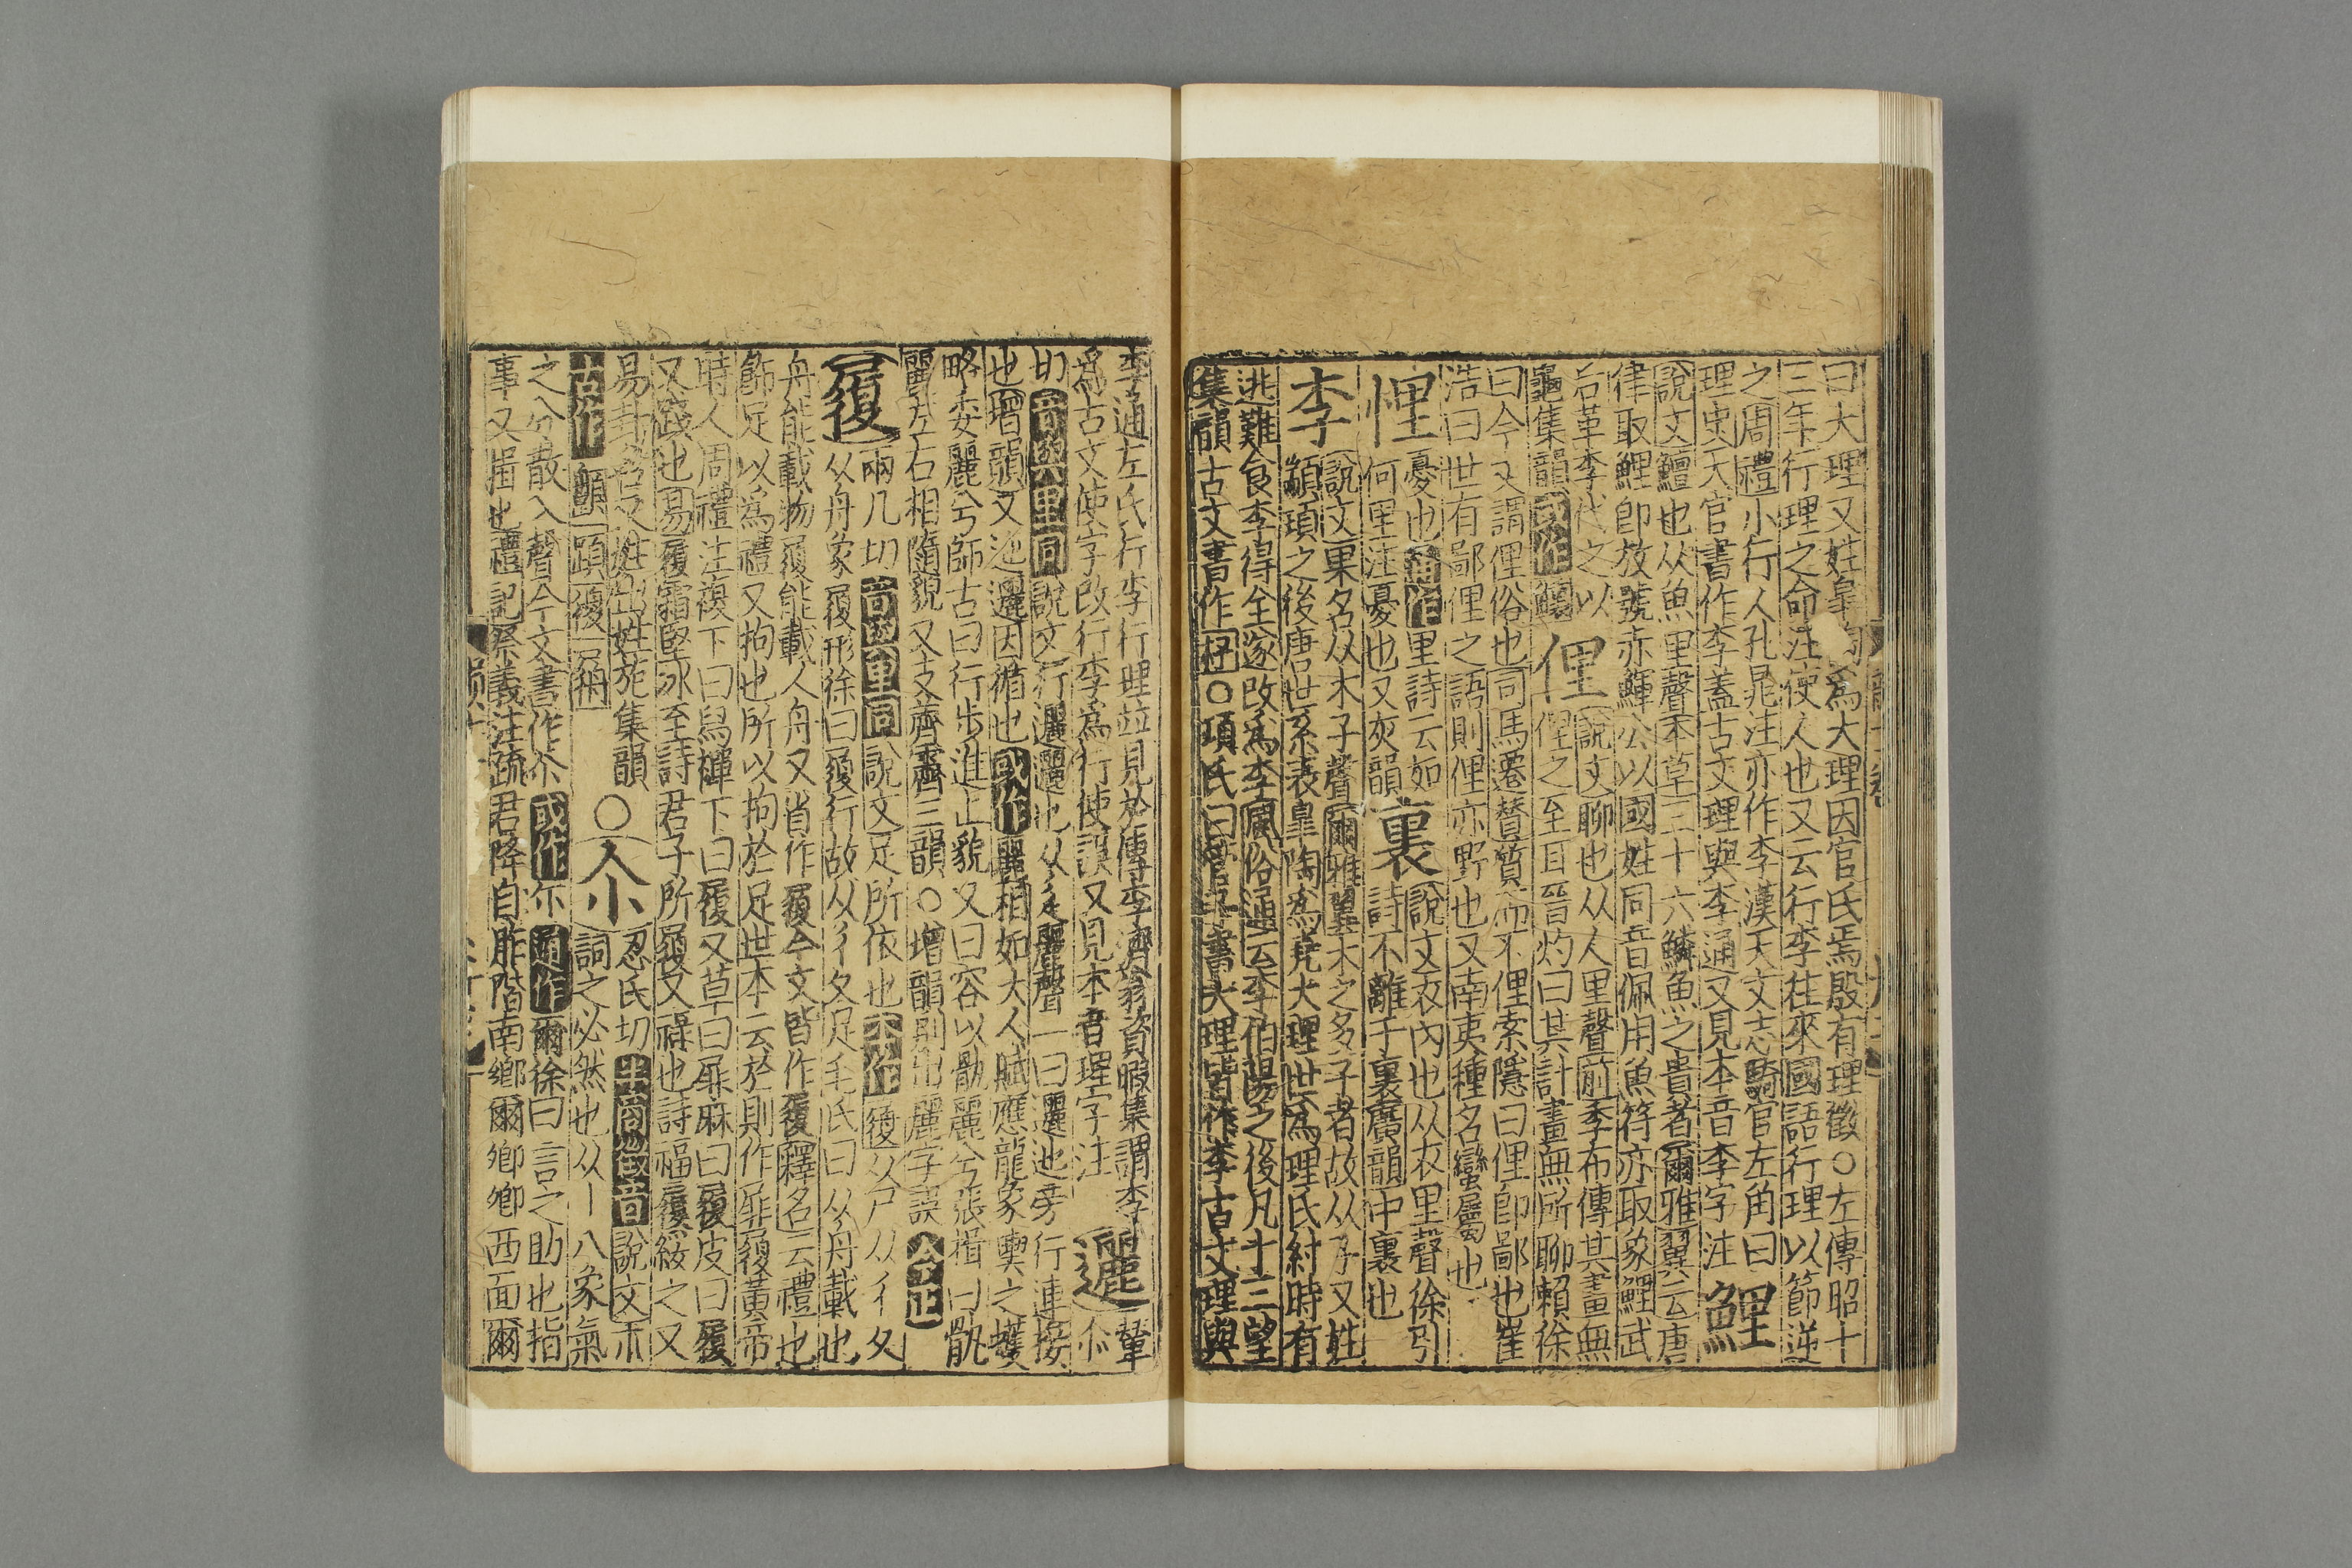 曰大理又姓皐陶爲大理因官氏焉殷有理徵○左傳昭十
三年行理之命注使人也又云行李往來國語行理以節逆
之周禮小行人孔晁注亦作李漢天文志騎官左角曰
理史天官書作李蓋古文理與李通又見本音李字注 鯉
說文鱣也从魚里聲本草三十六鱗魚之貴者爾雅翼云唐
律取鯉卽放號赤鯶公以國姓同音佩用魚符亦取象鯉武
后革李代之以
龜集韻或作 俚 說文聊也从人里聲前季布傳其畫無
俚之至耳晉灼曰其計畫無所聊賴徐
曰今又謂俚俗也司馬遷贊質而不俚索隱曰俚卽鄙也崔
浩曰世有鄙俚之語則俚亦野也又南夷種名蠻屬也
悝 憂也通作里詩云如
何里注憂也又灰韻 裏 說文衣內也从衣里聲徐引
詩不離于裏廣韻中裏也
李 說文果名从木子聲爾雅翼木之多子者故从子又姓
顓頊之後唐世系表皐陶爲堯大理世爲理氏紂時有
逃難食李得全遂改爲李風俗通云李伯陽之後凡十三望
集韻古文書作杍○項氏曰管子書大理皆作李古文理與
李通左氏行李行理竝見於傳李濟翁資暇集謂李
爲古文使字改行李爲行使誤又見本音理字注 邐 輦尒
切音與里同說文行邐邐也从辵麗聲一曰邐迆旁行連接
也增韻又迆邐因循也或作麗相如大人賦應龍象輿之蠖
略委麗兮師古曰行步進止貌又曰容以骫麗兮張揖曰骫
麗左右相隨貌又支薺霽三韻○增韻別出麗字誤今正
履 兩几切音與里同說文足所依也本作履从尸从彳夂
从舟象履形徐曰履行故从彳夂足毛氏曰从舟載也
舟能載物履能載人舟又省作今文皆作履釋名云禮也
飾足以爲禮又拘也所以拘於足世本云於則作屝履黃帝
時人周禮注複下曰舄襌下曰履又草曰屝麻曰履皮曰履
又踐也易履霜堅冰至詩君子所履又祿也詩福履綏之又
易卦名又姓出姓苑集韻
古作 ○ 尒 忍氏切半商徵音說文
詞之必然也从丨八象氣
之八分散入聲今文書作尒或作尓通作爾徐曰言之助也指
事又崙也禮記祭義注疏君降自阼階南鄉爾卿卿西面爾